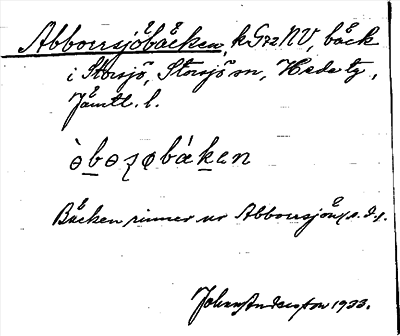 Abborrsjöbäcken, k Grz NV, bäck
i Storsjö, Storsjö sn, Hede tg,
Jämtl. l.
Bäcken rinner ur Abborrsjön, s. d.
Johan Anderson 1933.